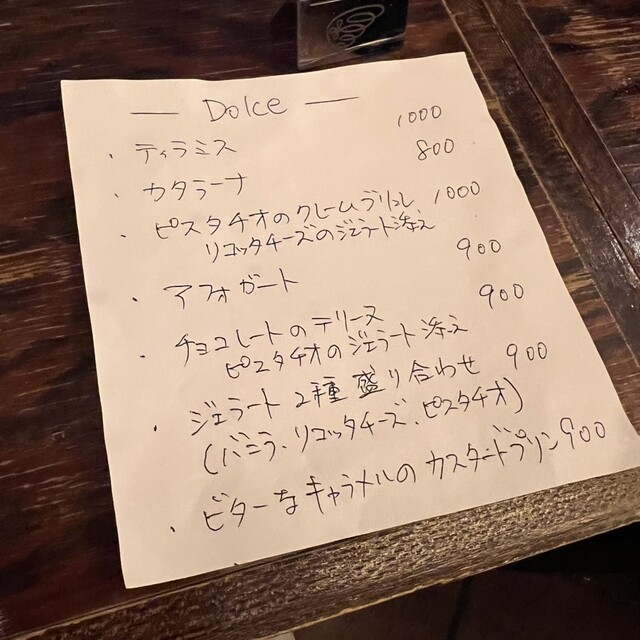 — Dolce —
・ティラミス 1000
・カタラーナ 800
・ピスタチオのクレームブリュレ 1000
リコッタチーズのジェラート添え
・アフォガート 900
・チョコレートのテリーヌ 900
ピスタチオのジェラート添え
・ジェラート2種盛り合わせ 900
(バニラ、リコッタチーズ、ピスタチオ)
・ビターなキャラメルのカスタードプリン 900